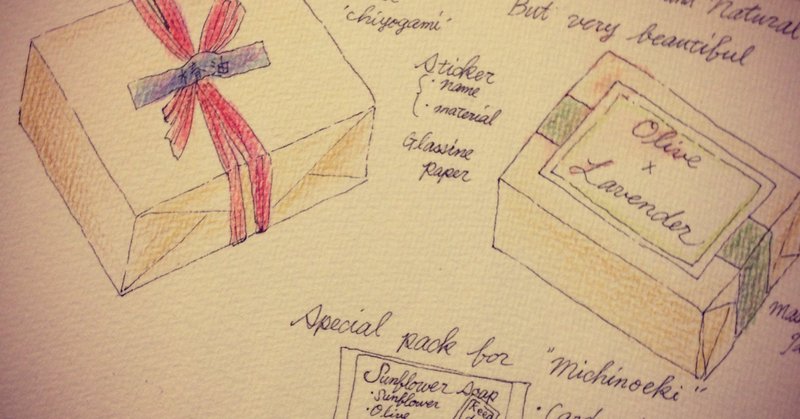 "chiyogami"
and Natural
But very beautiful
椿油
Sticker
・name
・material
Glassine
paper
Olive
x
Lavender
Special pack for "Michinoeki"
Sunflower Soap
・Sunflower
・Olive
・Card